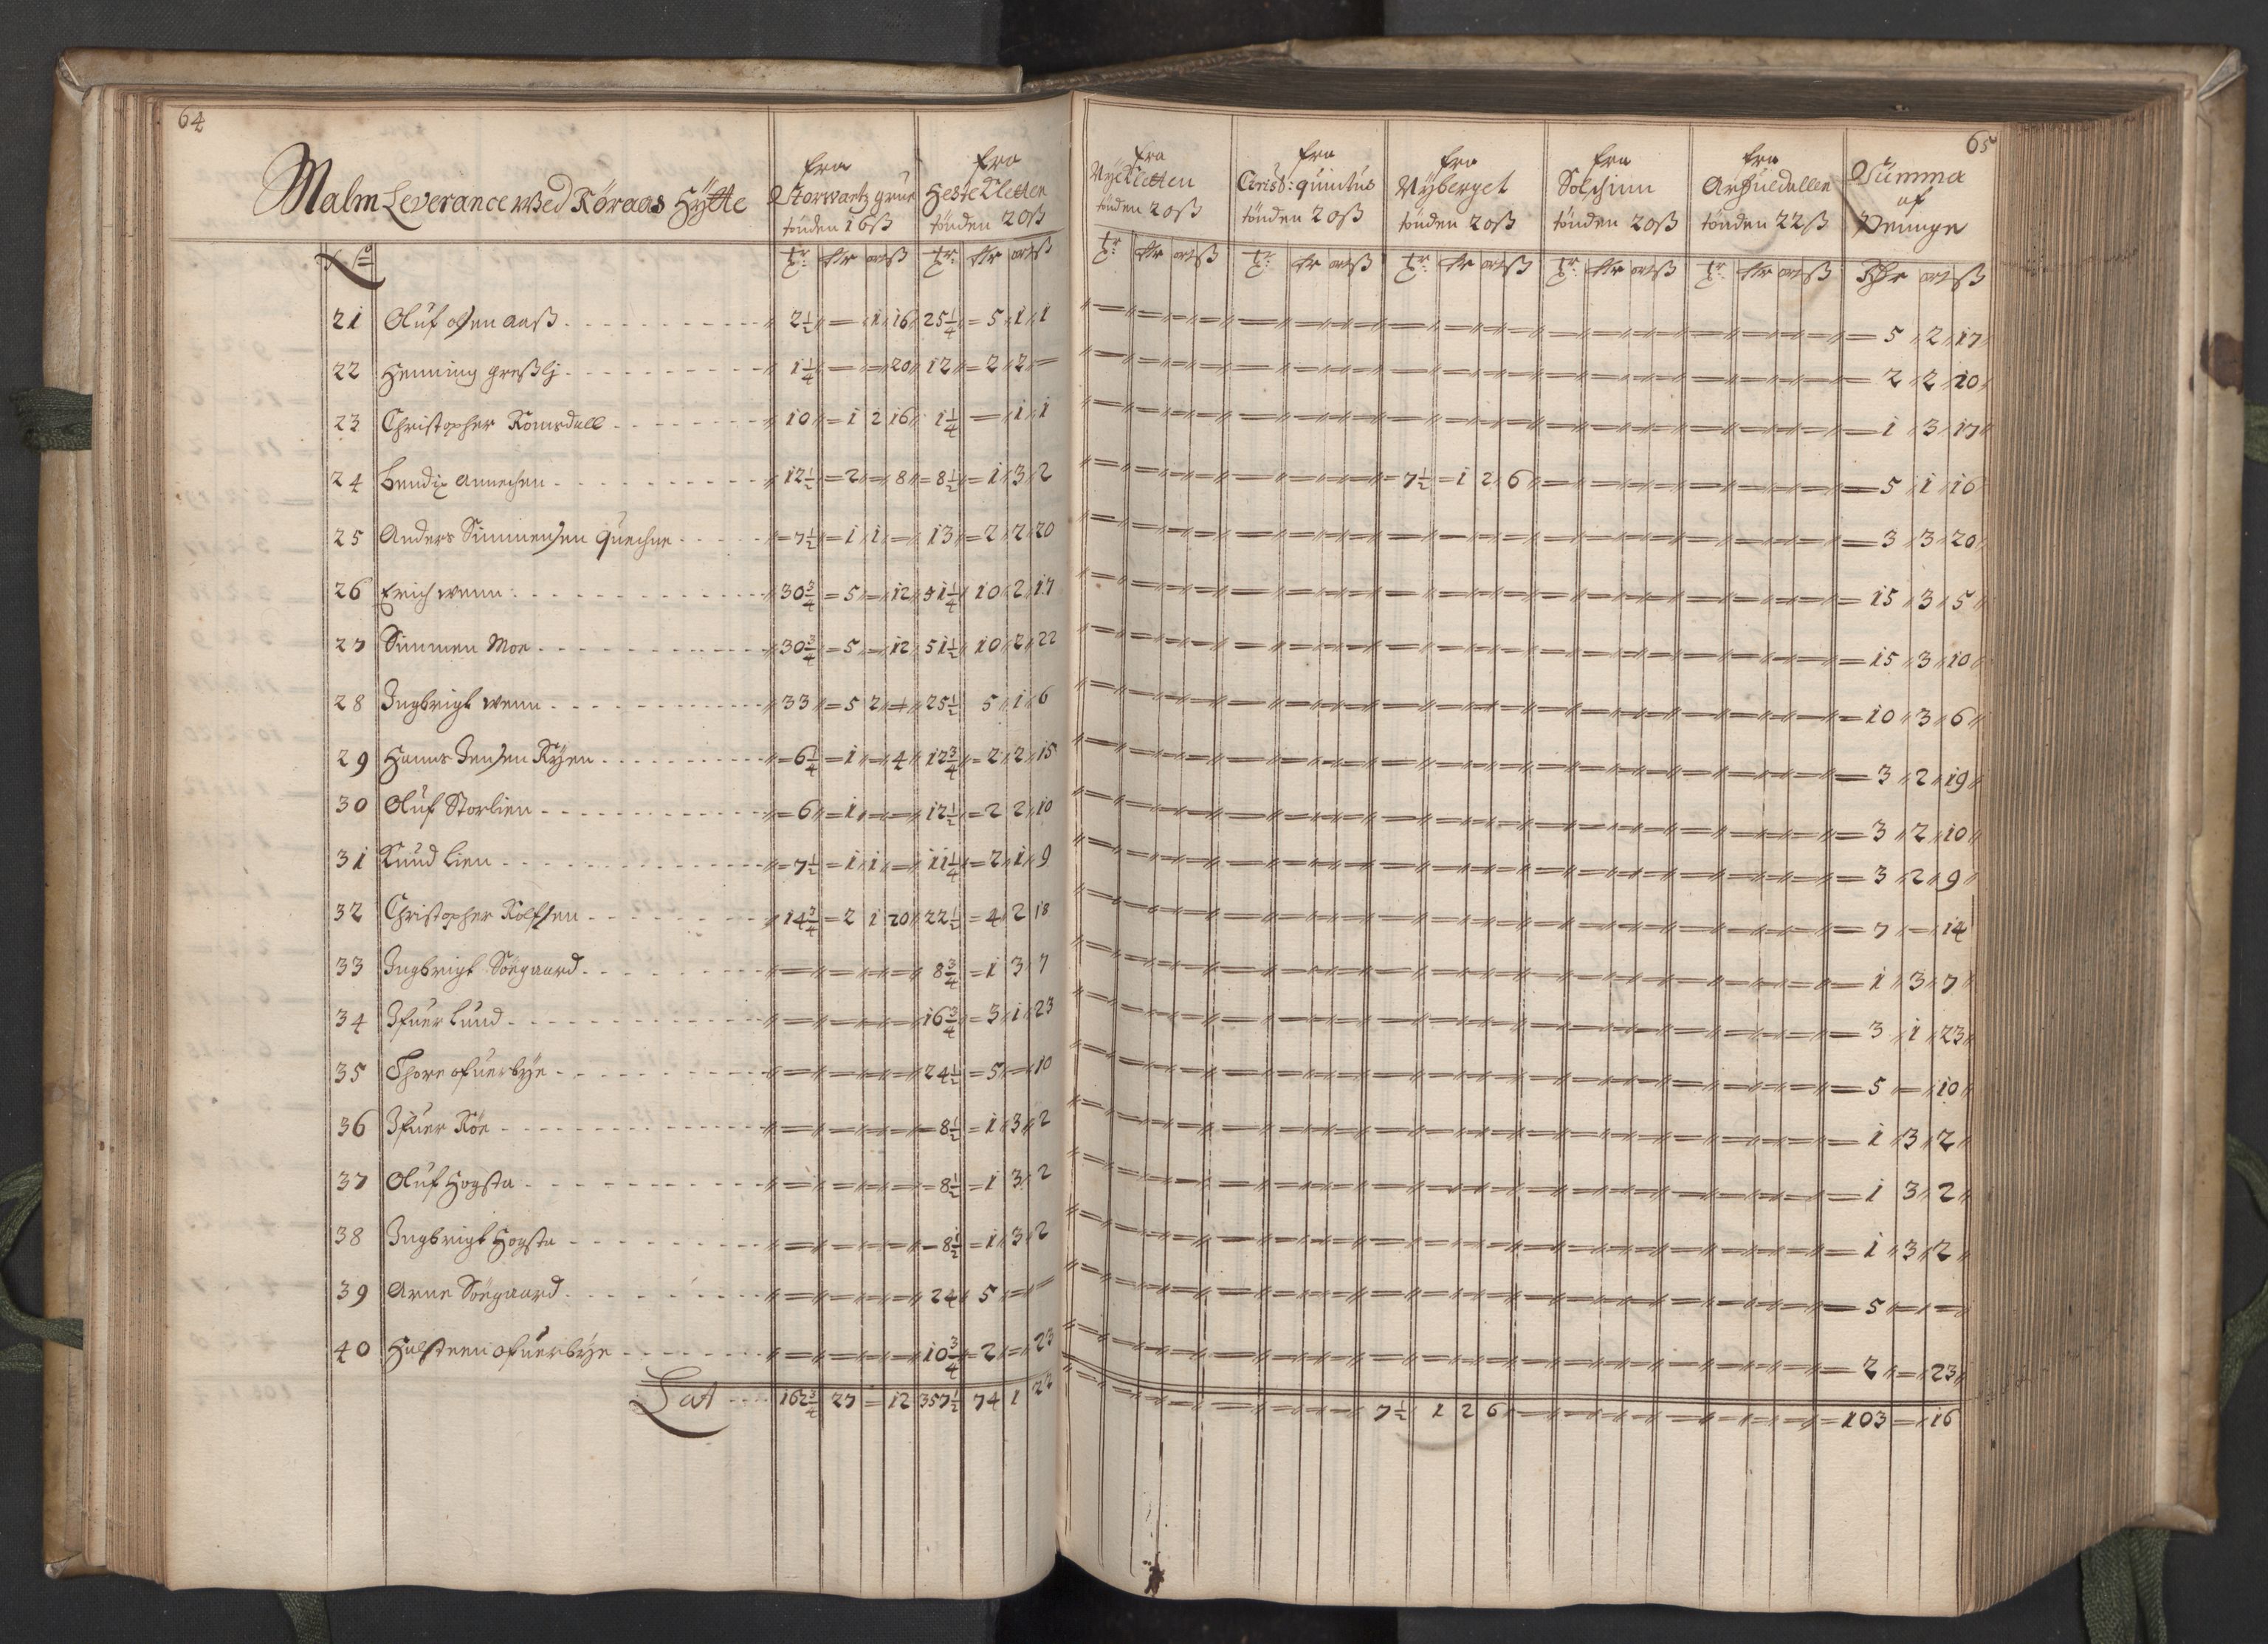 64
65
Malm Leverance Wed Röraas Hÿtte
fra Storwartz grue tönden 16ß
fra Heste Kletten tönden 20ß
fra Nÿe Kletten tönden 20ß
fra Christ: quintus tönden 20ß
fra Nÿberget tönden 20ß
fra Solschinn tönden 20ß
fra Arfuedallen tönden 22ß
Summa af Peninge
Tr: Rr ort ß Tr: Rr ort ß Tr: Rr ort ß Tr: Rr ort ß Tr: Rr ort ß Tr: Rr ort ß Tr: Rr ort ß Rdr ort ß
21 Oluf olsen aaß 2½ — 1 16 25¼ 5 1 1 — 5 2 17
22 Henning greßlj 1¼ — — 20 12 2 2 — — 2 2 10
23 Christopher Romsdall 10 1 2 16 1¼ — 1 1 — 1 3 17
24 Bendix annechen 12½ 2 — 8 8½ 1 3 2 — 7½ 1 2 6 — 5 1 16
25 Anders Simmensen Quechne 7½ 1 1 — 13 2 2 20 — 3 3 20
26 Erich wenn 30¾ 5 — 12 51¼ 10 2 17 — 15 3 5
27 Simmen Moe 30¾ 5 — 12 51½ 10 2 22 — 15 3 10
28 Ingbrigt wenn 33 5 2 — 25½ 5 1 6 — 10 3 6
29 Hanns Jensen Rÿen 6¼ 1 — 4 12¾ 2 2 15 — 3 2 19
30 Oluf Storlien 6 1 — — 12½ 2 2 10 — 3 2 10
31 Knud Lien 7½ 1 1 — 11¼ 2 1 9 — 3 2 9
32 Christopher Rolfsen 14¾ 2 1 20 22½ 4 2 18 — 7 — 14
33 Ingbrigt Söegaard — 8¾ 1 3 7 — 1 3 7
34 Ifuer Lund — 16¾ 3 1 23 — 3 1 23
35 Thore ofuerbÿe — 24½ 5 — 10 — 5 — 10
36 Ifuer Röe — 8½ 1 3 2 — 1 3 2
37 Oluf Hogsta — 8½ 1 3 2 — 1 3 2
38 Ingbrigt Hogsta — 8½ 1 3 2 — 1 3 2
39 Arne Söegaard — 24 5 — — — 5 — —
40 Halsteen ofuerbÿe — 10¾ 2 — 23 — 2 — 23
Lat 162¾ 27 — 12 357½ 74 1 22 — 7½ 1 2 6 — 103 — 16